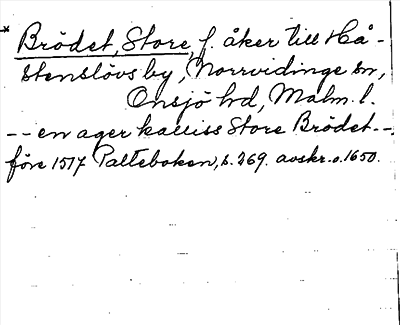 * Brödet, Store, f. åker till Hå-
stenslövs by, Norrvidinge sn,
Onsjö hd, Malm. l.
-- en ager kalliss Store Brödet --
före 1517 Palteboken, s. 269. avskr. o. 1650.